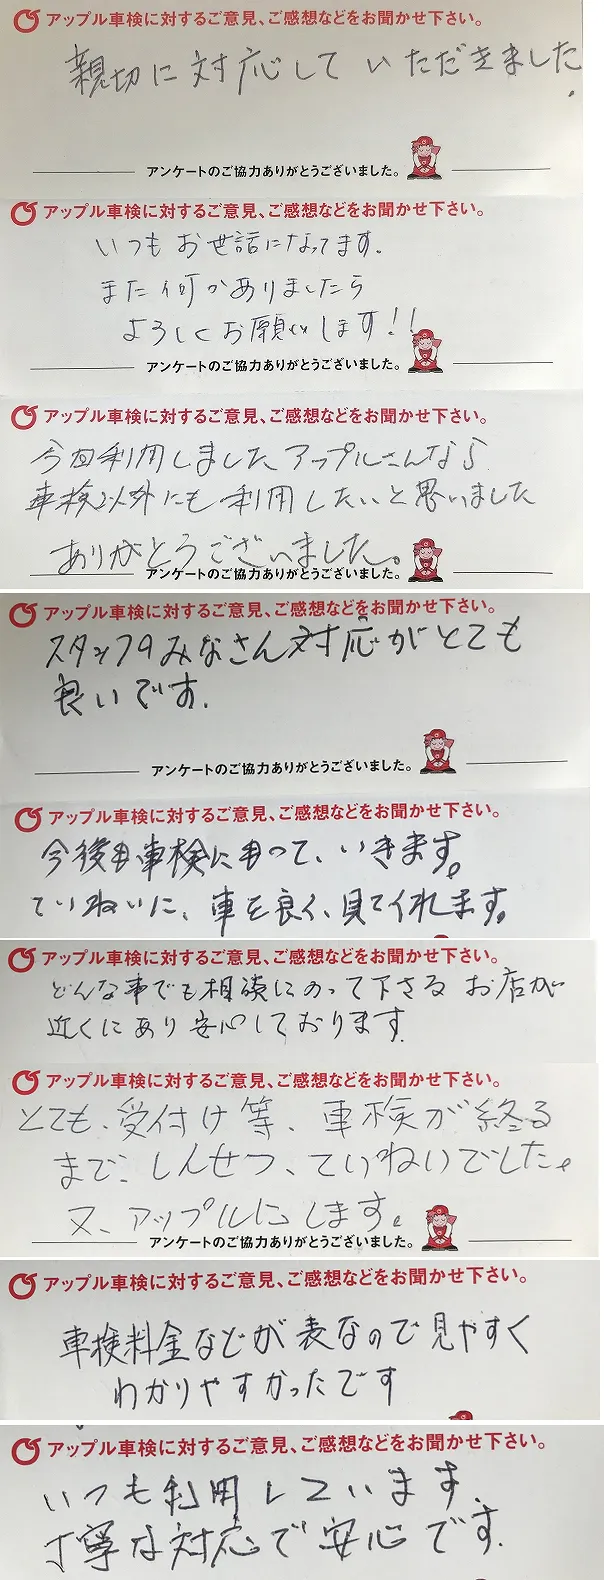 アップル車検に対するご意見、ご感想などをお聞かせ下さい。
親切に対応していただきました.
アンケートのご協力ありがとうございました。
アップル車検に対するご意見、ご感想などをお聞かせ下さい。
いつもお世話になってます.
また何かありましたら
よろしくお願いします!!
アンケートのご協力ありがとうございました。
アップル車検に対するご意見、ご感想などをお聞かせ下さい。
今回利用しました アップルさんなら
車検以外にも利用したいと思いました
ありがとうございました。
アンケートのご協力ありがとうございました。
アップル車検に対するご意見、ご感想などをお聞かせ下さい。
スタッフのみなさん対応がとても
良いです.
アンケートのご協力ありがとうございました。
アップル車検に対するご意見、ご感想などをお聞かせ下さい。
今後も車検にもって、いきます。
ていねいに、車を良く、見てくれます。
アップル車検に対するご意見、ご感想などをお聞かせ下さい。
どんな事でも相談にのって下さる お店が
近くにあり 安心しております.
アップル車検に対するご意見、ご感想などをお聞かせ下さい。
とても、受付け等、車検が終る
まで、しんせつ、ていねいでした。
又、アップルにします。
アンケートのご協力ありがとうございました。
アップル車検に対するご意見、ご感想などをお聞かせ下さい。
車検料金などが表なので見やすく
わかりやすかったです
アップル車検に対するご意見、ご感想などをお聞かせ下さい。
いつも利用しています.
丁寧な対応で安心です.